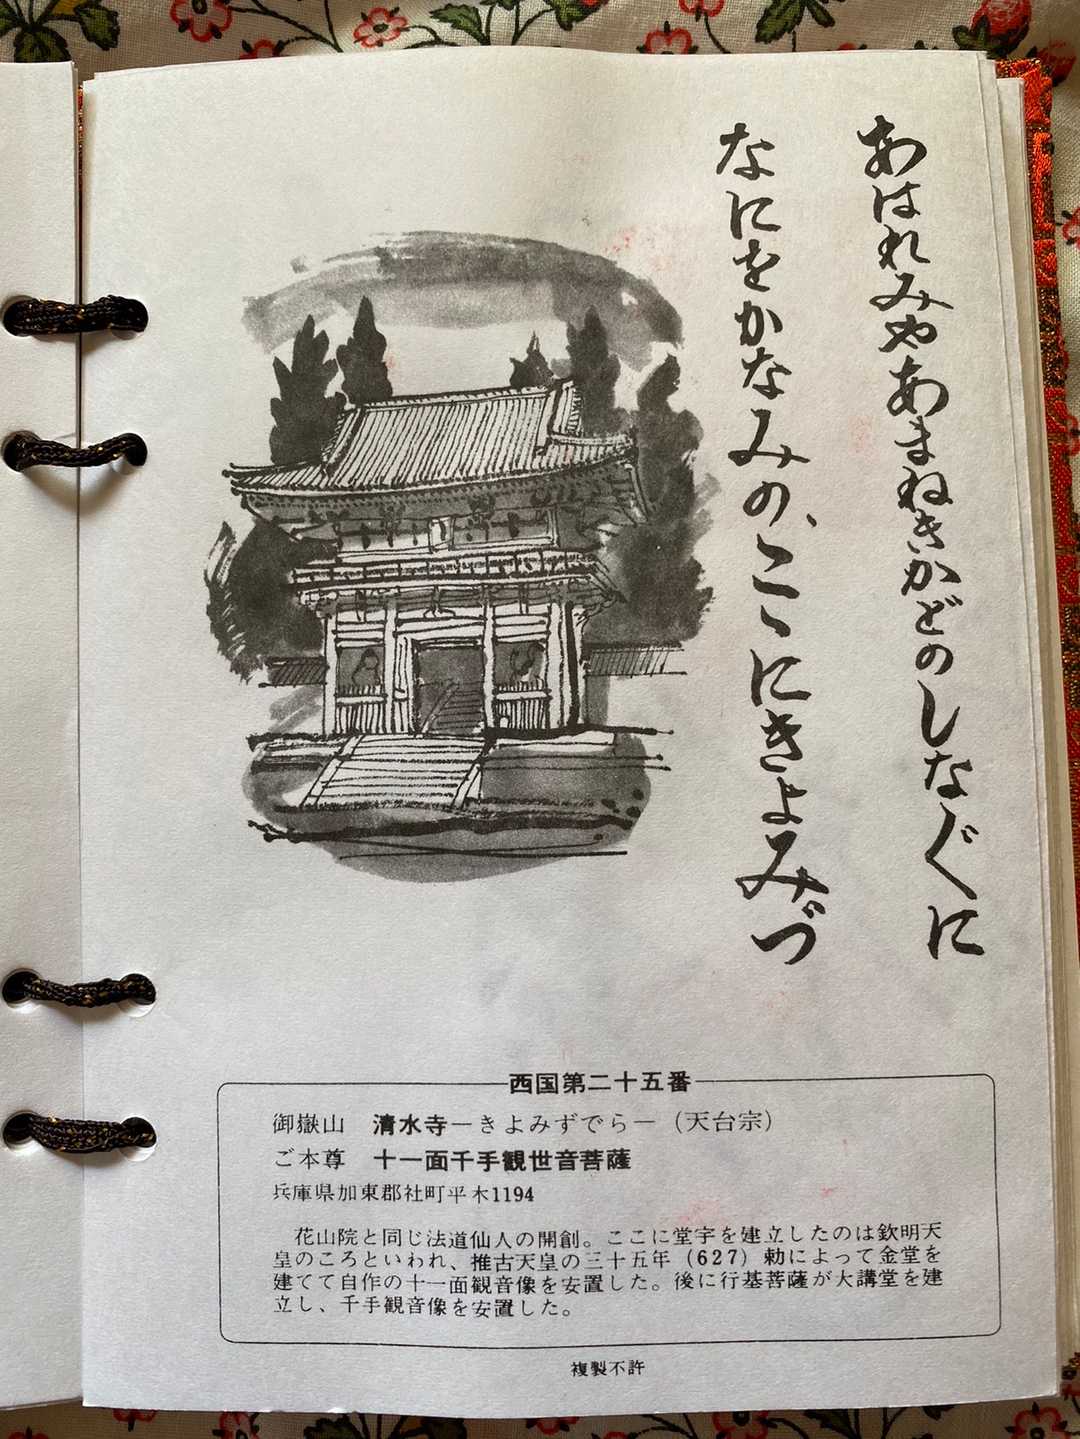 あはれみやあまねきかどのしな〲に
なにをかなみの、こゝにきよみづ
西国第二十五番
御嶽山 清水寺―きよみずでら―（天台宗）
ご本尊 十一面千手観世音菩薩
兵庫県加東郡社町平木1194
花山院と同じ法道仙人の開創。ここに堂宇を建立したのは欽明天
皇のころといわれ、推古天皇の三十五年（627）勅によって金堂を
建てて自作の十一面観音像を安置した。後に行基菩薩が大講堂を建
立し、千手観音像を安置した。
複製不許